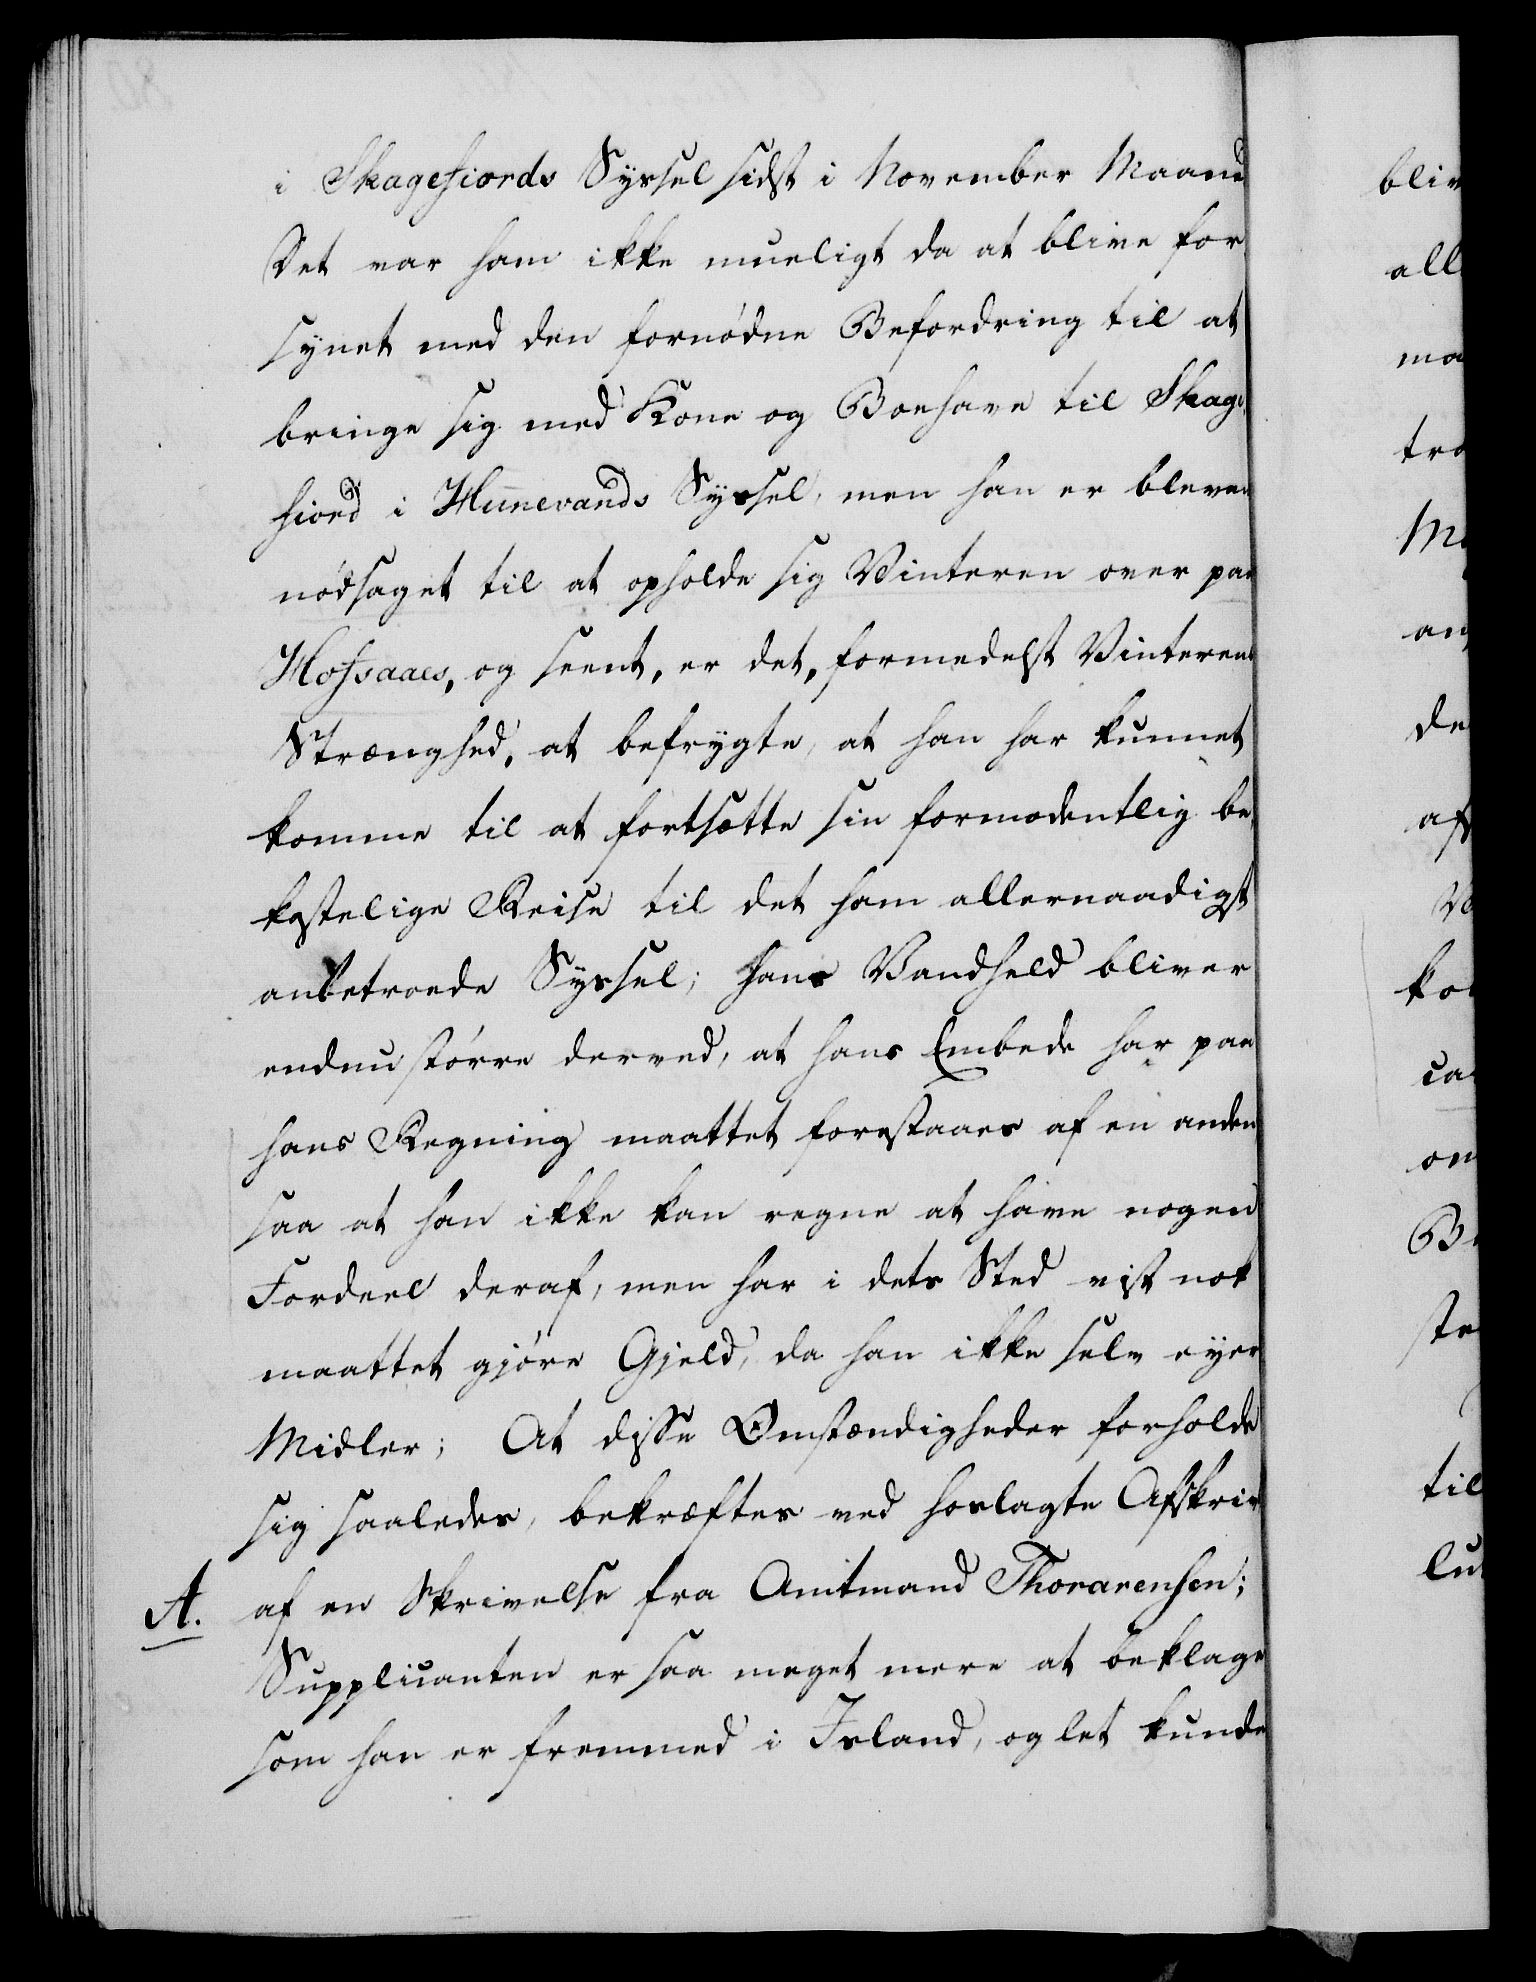 i Skagefiords Syssel sidst i November Maaned
Det var ham ikke mueligt da at blive for
synet med den fornødne Befordring til at
bringe sig med Kone og Boehave til Skage
fiord i Hunevands Syssel, men han er bleven
nødsaget til at opholde sig Vinteren over paa
Hofsaaes, og seent, er det, formedelst Vinterens
Strænghed, at befrygte, at han har kunnet
komme til at fortsætte sin formodentlig be
kostelige Reise til det ham allernaadigst
anbetroede Syssel; hans Vandheld bliver
endnu større derved, at hans Embede har paa
hans Regning maattet forestaaes af en anden
saa at han ikke kan regne at have nogen
Fordeel deraf, men har i dets Sted vist nok
maattet gjøre Gjeld, da han ikke selv eyer
Midler; At disse Omstændigheder forholde
sig saaledes, bekræftes ved hoslagte Afskrivt
A. af en Skrivelse fra Amtmand Thorarensen;
Supplicanten er saa meget mere at beklage
som han er fremmed i Island, og let kunde
bliv
all
ma
tro
an
de
af
ko
ca
om
Be
ste
til
lu